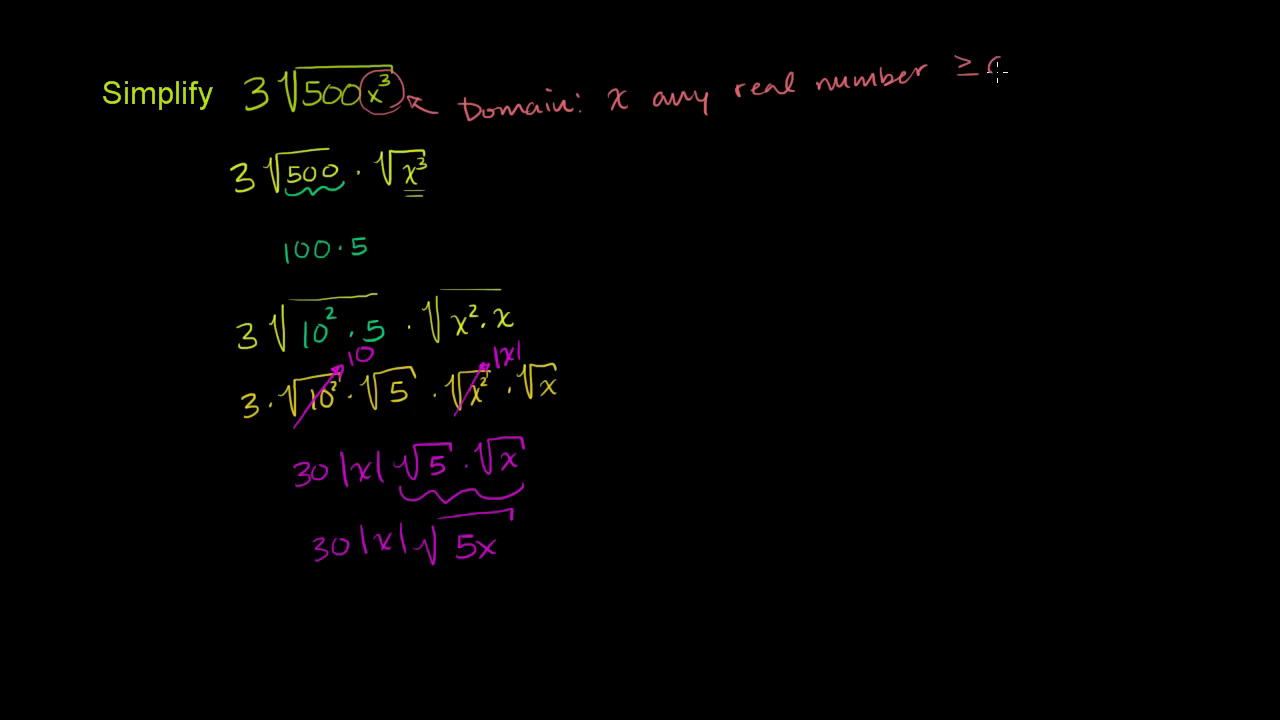 Simplify 3√500x³ ← Domain: x any real number ≥
3√500 · √x³
100 · 5
3√10² · 5 · √x² · x
10 |x|
3 · √10² · √5 · √x² · √x
30|x|√5 · √x
30|x|√5x